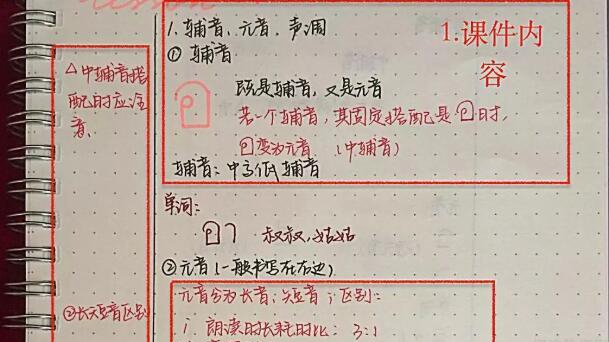 1.课件内
容
1.辅音、元音、声调
① 辅音
既是辅音,又是元音
若一个辅音,其固定搭配是 อ 时,
อ变为元音 (中辅音)
辅音:中高低辅音
△中辅音搭
配时应注
意、
单词:
叔叔,姑姑
②元音(一般书写在右边)
元音分为长音,短音;区别:
②长短音区别
1. 朗读时长耗时比: 3:1